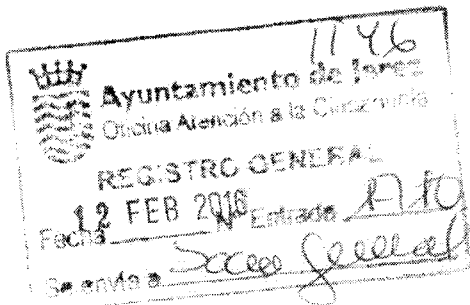 1146
Ayuntamiento de Jerez
Oficina Atención a la Ciudadanía
REGISTRO GENERAL
Fecha 12 FEB 2016 Nº Entrada
Se envía a